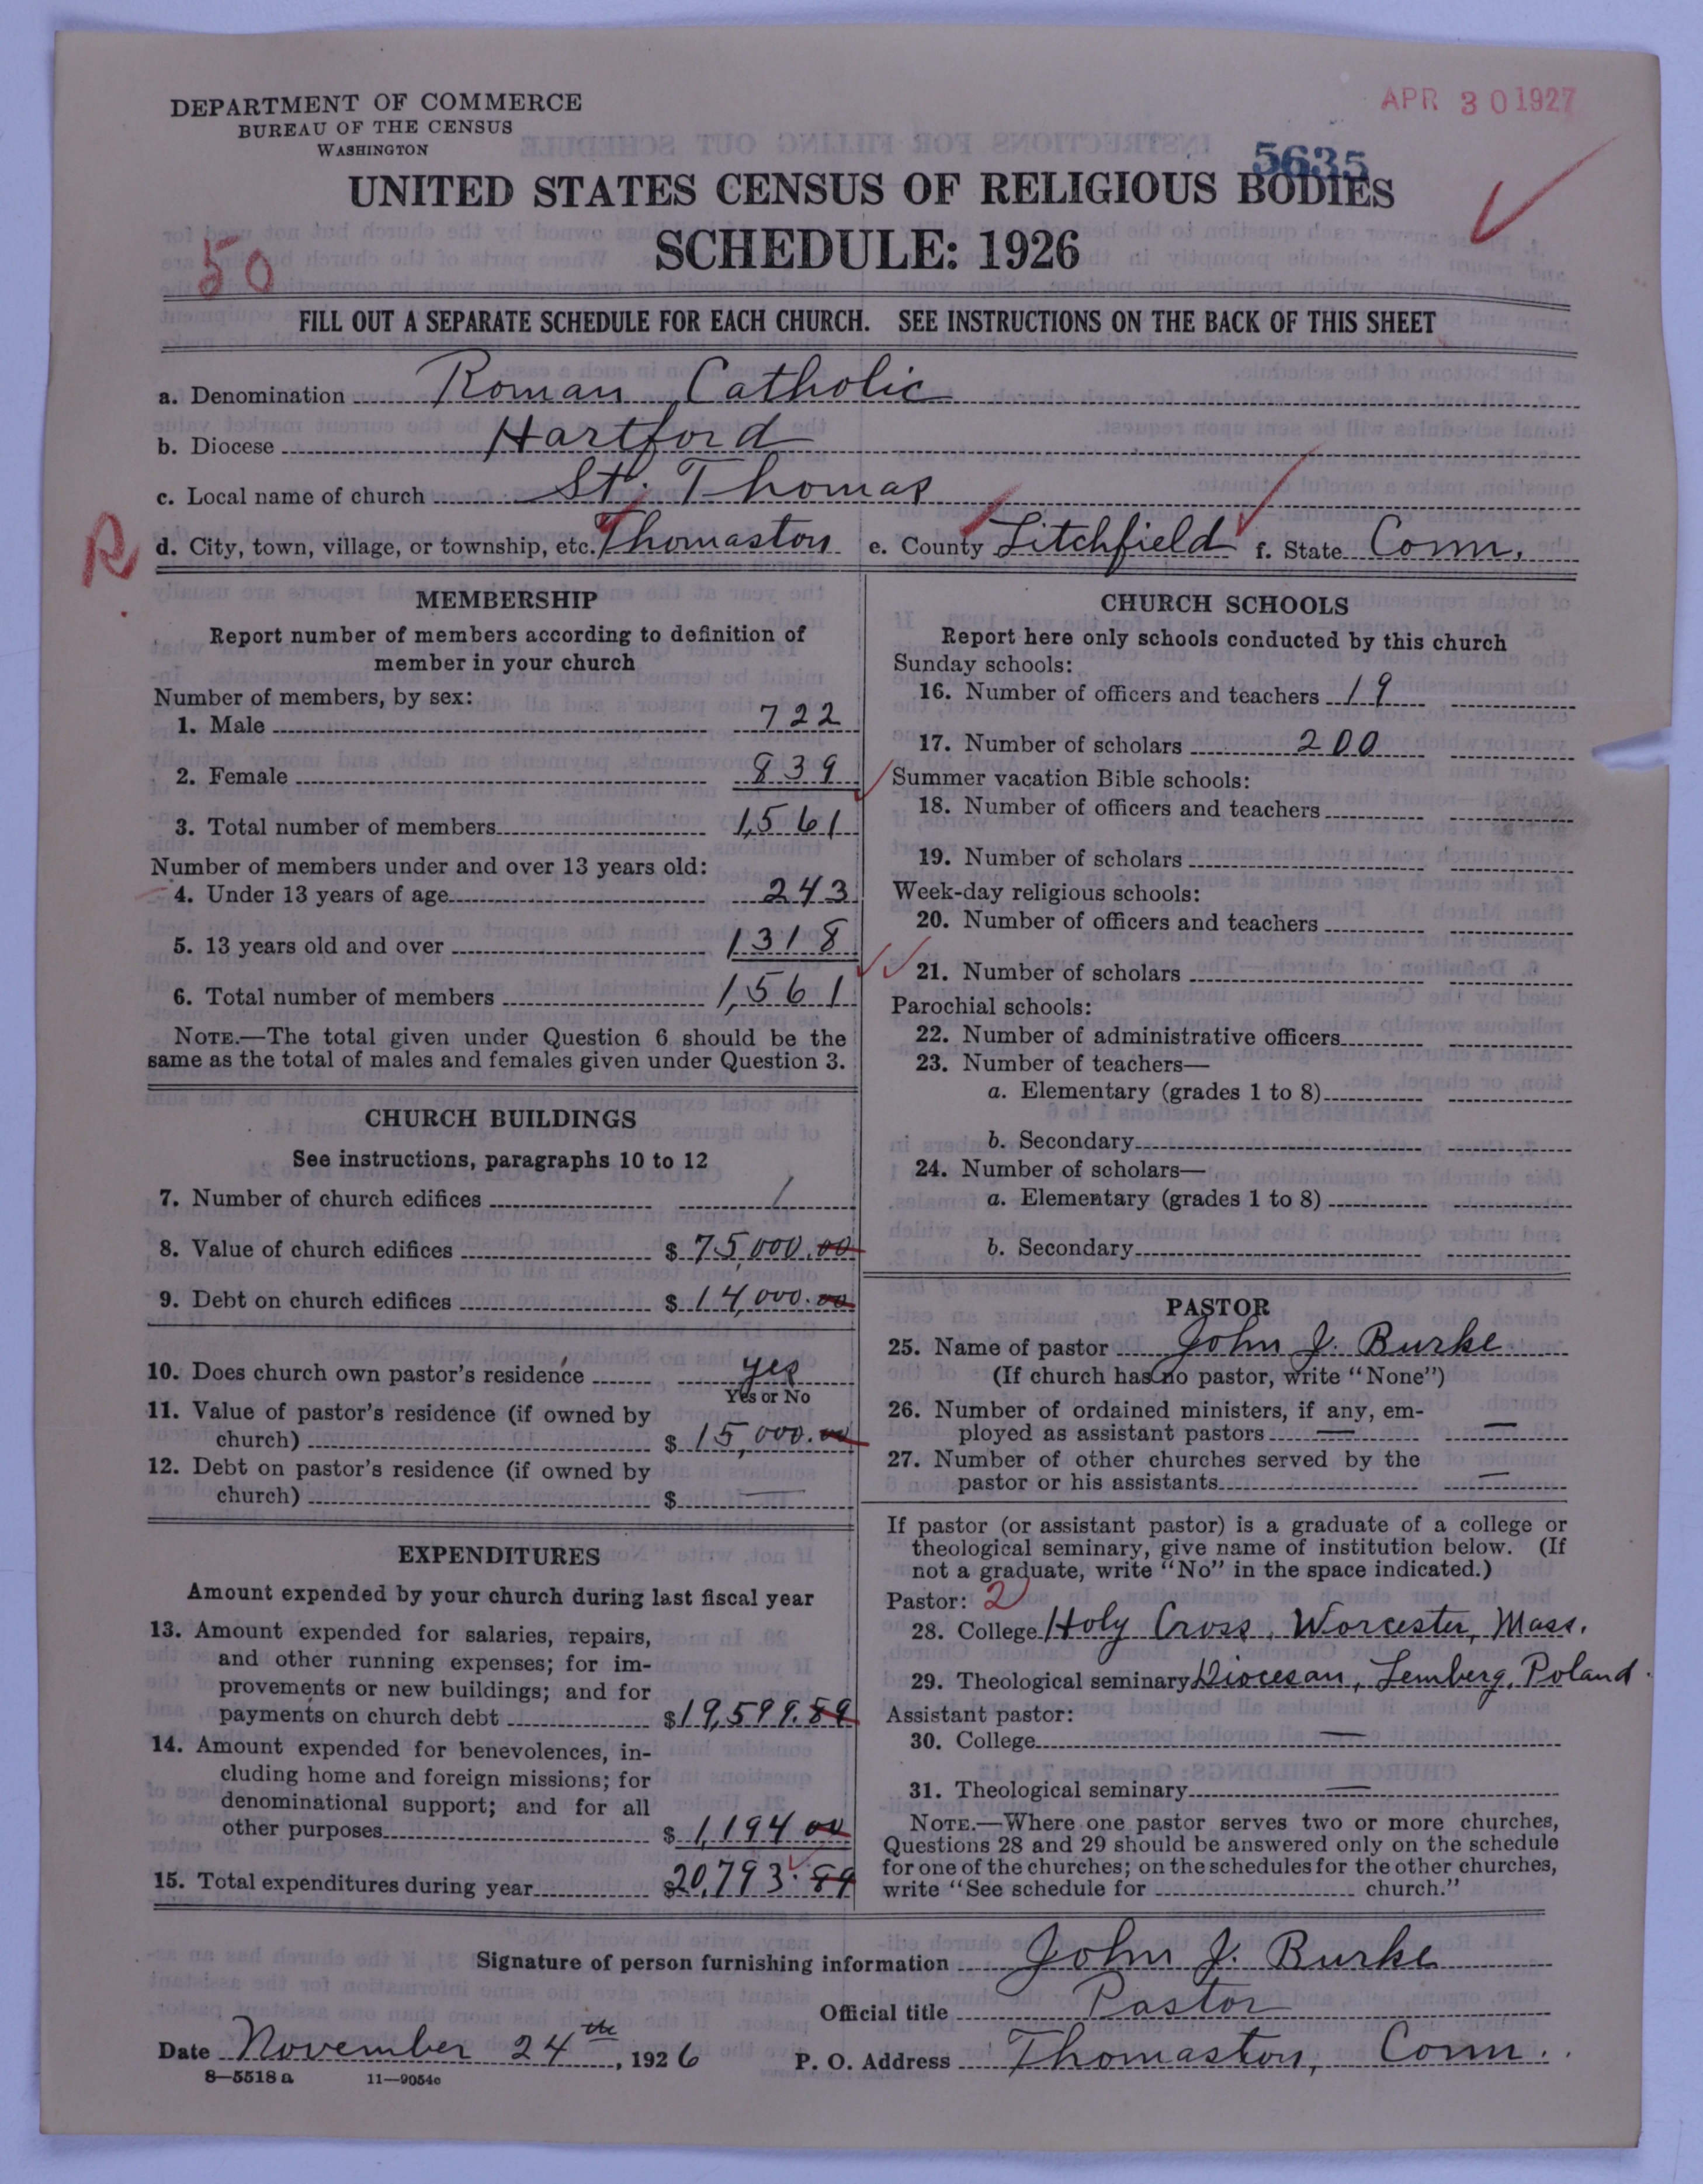 DEPARTMENT OF COMMERCE
BUREAU OF THE CENSUS
WASHINGTON
APR 30 1927
5635
UNITED STATES CENSUS OF RELIGIOUS BODIES
SCHEDULE: 1926
50
FILL OUT A SEPARATE SCHEDULE FOR EACH CHURCH. SEE INSTRUCTIONS ON THE BACK OF THIS SHEET
a. Denomination Roman Catholic
b. Diocese Hartford
c. Local name of church St. Thomas
R d. City, town, village, or township, etc. Thomaston e. County Litchfield f. State Conn.
MEMBERSHIP
Report number of members according to definition of
member in your church
Number of members, by sex:
1. Male 722
2. Female 839
3. Total number of members 1,561
Number of members under and over 13 years old:
4. Under 13 years of age 243
5. 13 years old and over 1318
6. Total number of members 1,561
NOTE.—The total given under Question 6 should be the
same as the total of males and females given under Question 3.
CHURCH BUILDINGS
See instructions, paragraphs 10 to 12
7. Number of church edifices 1
8. Value of church edifices $ 75,000.00
9. Debt on church edifices $ 14,000.00
10. Does church own pastor's residence yes
Yes or No
11. Value of pastor's residence (if owned by
church) $ 15,000.00
12. Debt on pastor's residence (if owned by
church) $ —
EXPENDITURES
Amount expended by your church during last fiscal year
13. Amount expended for salaries, repairs,
and other running expenses; for im-
provements or new buildings; and for
payments on church debt $19,599.89
14. Amount expended for benevolences, in-
cluding home and foreign missions; for
denominational support; and for all
other purposes $ 1,194 00
15. Total expenditures during year $20,793.89
CHURCH SCHOOLS
Report here only schools conducted by this church
Sunday schools:
16. Number of officers and teachers 19
17. Number of scholars 200
Summer vacation Bible schools:
18. Number of officers and teachers
19. Number of scholars
Week-day religious schools:
20. Number of officers and teachers
21. Number of scholars
Parochial schools:
22. Number of administrative officers
23. Number of teachers—
a. Elementary (grades 1 to 8)
b. Secondary
24. Number of scholars—
a. Elementary (grades 1 to 8)
b. Secondary
PASTOR
25. Name of pastor John J. Burke
(If church has no pastor, write "None")
26. Number of ordained ministers, if any, em-
ployed as assistant pastors — —
27. Number of other churches served by the
pastor or his assistants —
If pastor (or assistant pastor) is a graduate of a college or
theological seminary, give name of institution below. (If
not a graduate, write "No" in the space indicated.)
Pastor: 2
28. College Holy Cross, Worcester, Mass.
29. Theological seminary Diocesan, Lemberg, Poland.
Assistant pastor:
30. College —
31. Theological seminary —
NOTE.—Where one pastor serves two or more churches,
Questions 28 and 29 should be answered only on the schedule
for one of the churches; on the schedules for the other churches,
write "See schedule for church."
Signature of person furnishing information John J. Burke
Official title Pastor
Date November 24th, 1926 P. O. Address Thomaston, Conn.
8—5518 a 11—9054c